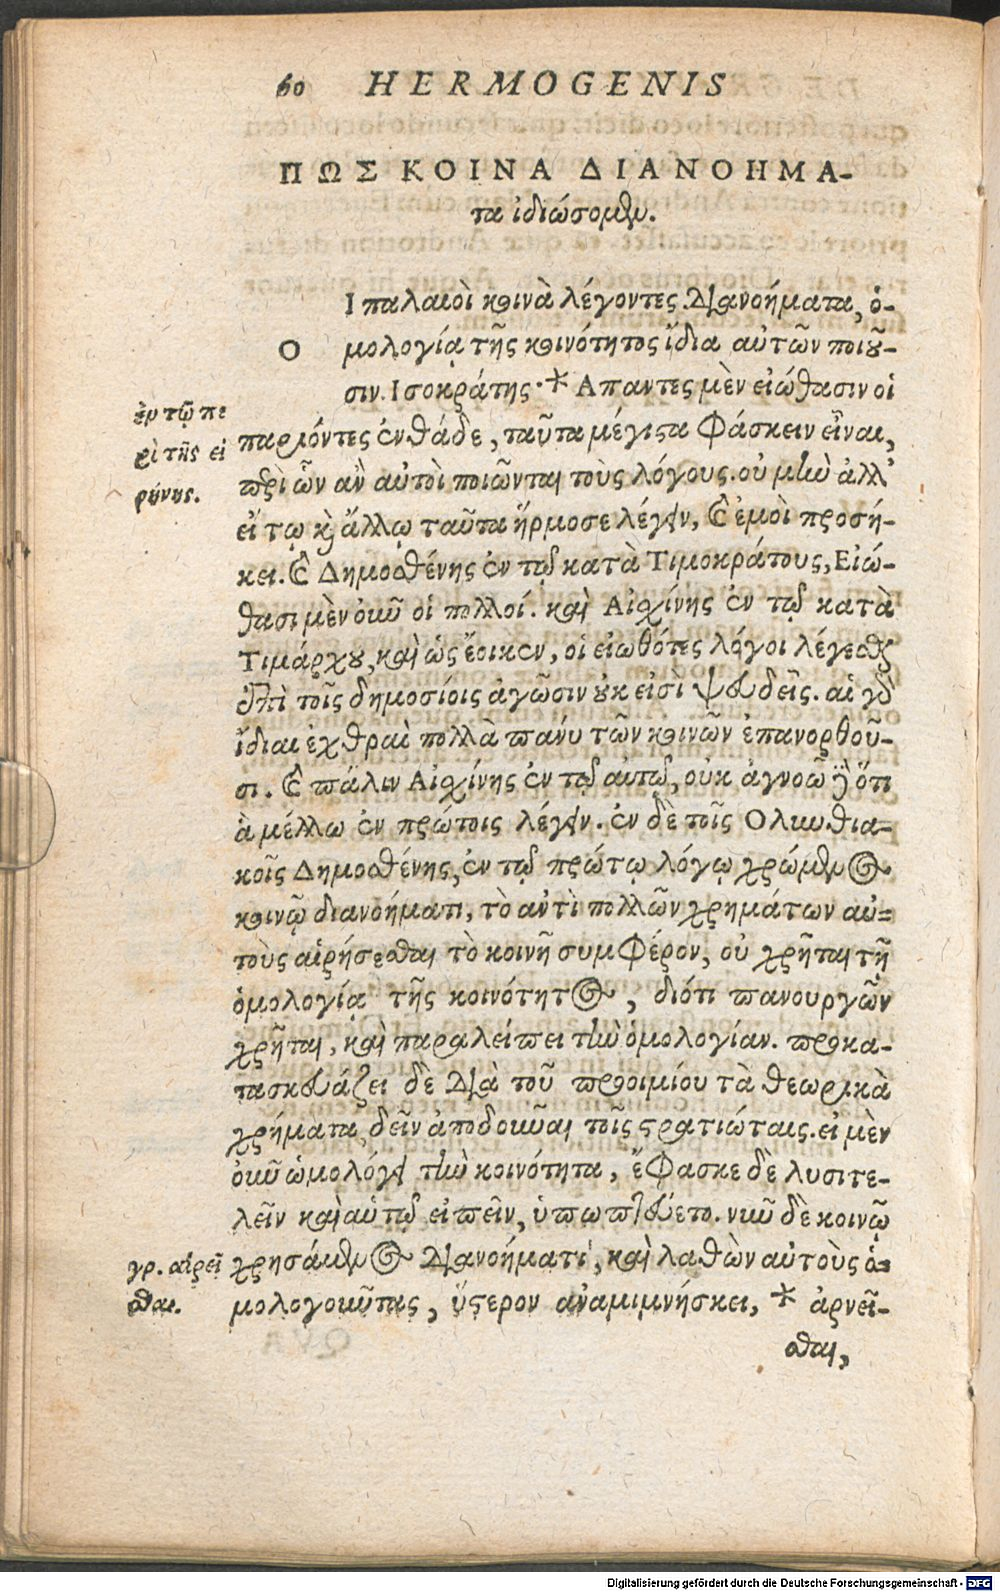 60 HERMOGENIS
ΠΩΣ ΚΟΙΝΑ ΔΙΑΝΟΗΜΑ-
τα ἰδιώσομεν.
Ι παλαιοὶ κοινὰ λέγοντες διανοήματα, ὁ-
Ο μολογίᾳ τῆς κοινότητος ἴδια αὐτῶν ποιοῦ-
σιν. Ισοκράτης· * Απαντες μὲν εἰώθασιν οἱ
παριόντες ἐνθάδε, ταῦτα μέγιστα φάσκειν εἶναι,
περὶ ὧν ἂν αὐτοὶ ποιῶνται τοὺς λόγους. οὐ μὴν ἀλλ'
εἴ τῳ καὶ ἄλλῳ ταῦτα ἥρμοσε λέγειν, καὶ ἐμοὶ προσή-
κει. καὶ Δημοσθένης ἐν τῷ κατὰ Τιμοκράτους, Εἰώ-
θασι μὲν οὖν οἱ πολλοί. καὶ Αἰσχίνης ἐν τῷ κατὰ
Τιμάρχου, καὶ ὡς ἔοικεν, οἱ εἰωθότες λόγοι λέγεσθαι
ἐπὶ τοῖς δημοσίοις ἀγῶσιν οὐκ εἰσὶ ψευδεῖς. αἱ γὰρ
ἴδιαι ἐχθραὶ πολλὰ πάνυ τῶν κοινῶν ἐπανορθοῦ-
σι. καὶ πάλιν Αἰσχίνης ἐν τῷ αὐτῷ, οὐκ ἀγνοῶ δὲ ὅτι
ἃ μέλλω ἐν πρώτοις λέγειν. ἐν δὲ τοῖς Ολυνθια-
κοῖς Δημοσθένης, ἐν τῷ πρώτῳ λόγῳ χρώμενος
κοινῷ διανοήματι, τὸ ἀντὶ πολλῶν χρημάτων αὐ-
τοὺς αἱρήσεσθαι τὸ κοινῇ συμφέρον, οὐ χρῆται τῇ
ὁμολογίᾳ τῆς κοινότητος, διότι πανουργῶν
χρῆται, καὶ παραλείπει τὴν ὁμολογίαν. προκα-
τασκευάζει δὲ διὰ τοῦ προοιμίου τὰ θεωρικὰ
χρήματα δεῖν ἀποδοῦναι τοῖς στρατιώταις. εἰ μὲν
οὖν ὡμολόγει τὴν κοινότητα, ἔφασκε δὲ λυσιτε-
λεῖν καὶ αὐτῷ εἰπεῖν, ὑπωπτεύετο. νῦν δὲ κοινῷ
χρησάμενος διανοήματι, καὶ λαθὼν αὐτοὺς ὁ-
μολογοῦντας, ὕστερον ἀναμιμνήσκει, * ἀρνεῖ-
σθαι,
ἐν τῷ πε
ρὶ τῆς εἰ
ρήνης.
γρ. αἱρεῖ
σθαι.
Digitalisierung gefördert durch die Deutsche Forschungsgemeinschaft - DFG